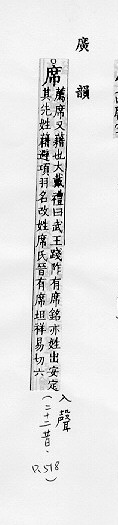 廣韻
席
薦席又藉也大戴禮曰武王踐阼有席銘亦姓出安定
其先姓藉避項羽名改姓席氏晉有席坦祥易切六
入聲
(二十二昔.
P.518)